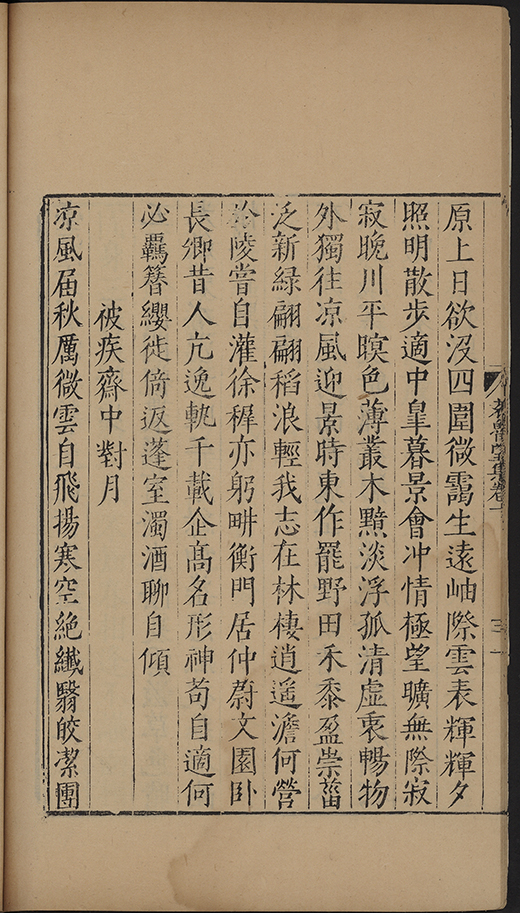 原上日欲沒四圍微靄生遠岫際雲表輝輝夕
照明散步適中臯暮景會冲情極望曠無際寂
寂晚川平暝色薄叢木黯淡浮孤清虛衷暢物
外獨往凉風迎景時東作罷野田禾黍盈崇菑
泛新緑翩翩稻浪輕我志在林棲逍遥澹何營
於陵嘗自灌徐穉亦躬畊衡門居仲蔚文園卧
長卿昔人亢逸軌千載企髙名形神茍自適何
必羈簪纓徙倚返蓬室濁酒聊自傾
被疾齋中對月
凉風届秋厲微雲自飛揚寒空絶纖翳皎潔團